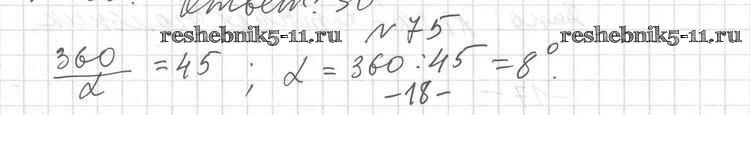 Ответ: 30
№ 75
reshebnik5-11.ru reshebnik5-11.ru
360/α = 45 ; α = 360 : 45 = 8°.
-18-